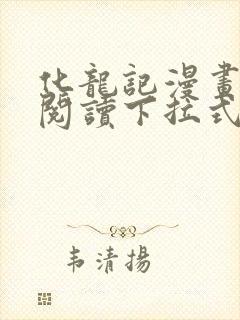 化龍記漫畫
閱讀下拉式
韦清揚